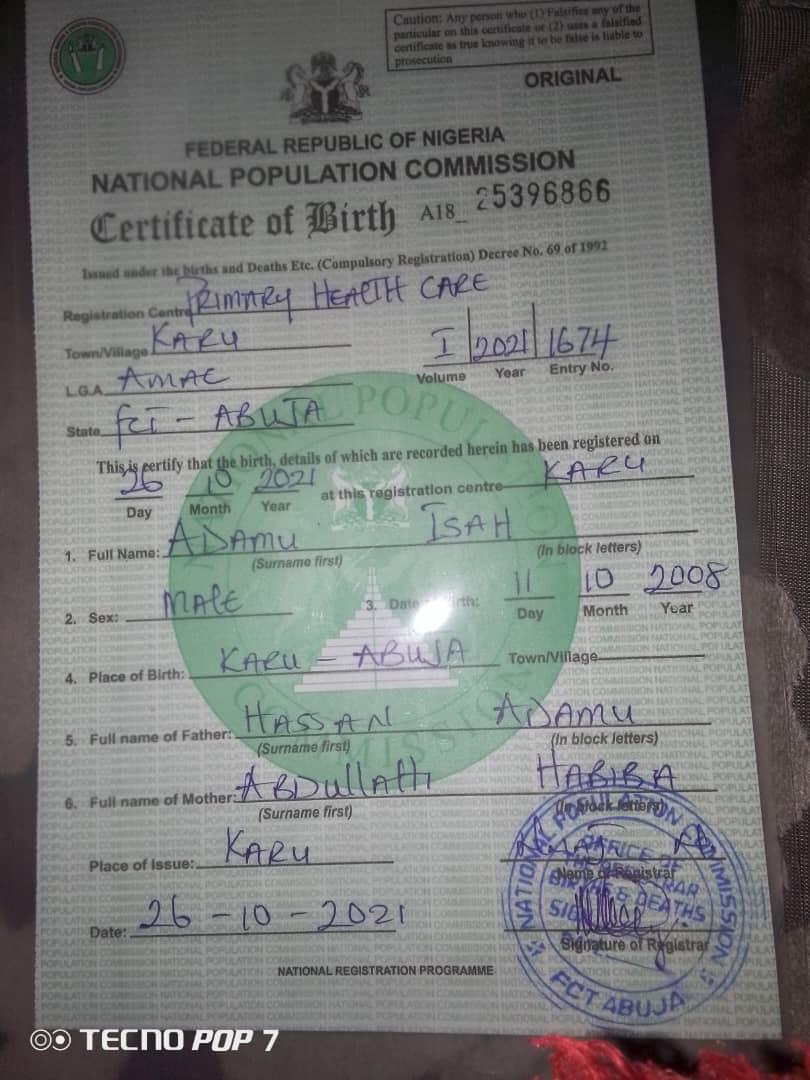 Caution: Any person who (1) Falsifies any of the
particular on this certificate or (2) uses a falsified
certificate as true knowing it to be false is liable to
prosecution
ORIGINAL
FEDERAL REPUBLIC OF NIGERIA
NATIONAL POPULATION COMMISSION
Certificate of Birth A18_ 25396866
Issued under the births and Deaths Etc. (Compulsory Registration) Decree No. 69 of 1992
Registration Centre PRIMARY HEALTH CARE
Town/Village KARU
I 2021 1674
Volume Year Entry No.
L.G.A. AMAC
State FCT - ABUJA
This is certify that the birth, details of which are recorded herein has been registered on
26 10 2021 at this registration centre KARU
Day Month Year
1. Full Name: ADAMU ISAH
(Surname first) (In block letters)
2. Sex: MALE 3. Date of Birth: 11 10 2008
Day Month Year
4. Place of Birth: KARU - ABUJA Town/Village
5. Full name of Father: HASSAN ADAMU
(Surname first) (In block letters)
6. Full name of Mother: ABDULLAHI HABIBA
(Surname first) (In block letters)
Place of Issue: KARU
Name of Registrar
Date: 26-10-2021
Signature of Registrar
NATIONAL POPULATION COMMISSION
OFFICE OF
THE REGISTRAR
BIRTHS & DEATHS
FCT ABUJA
NATIONAL REGISTRATION PROGRAMME
TECNO POP 7